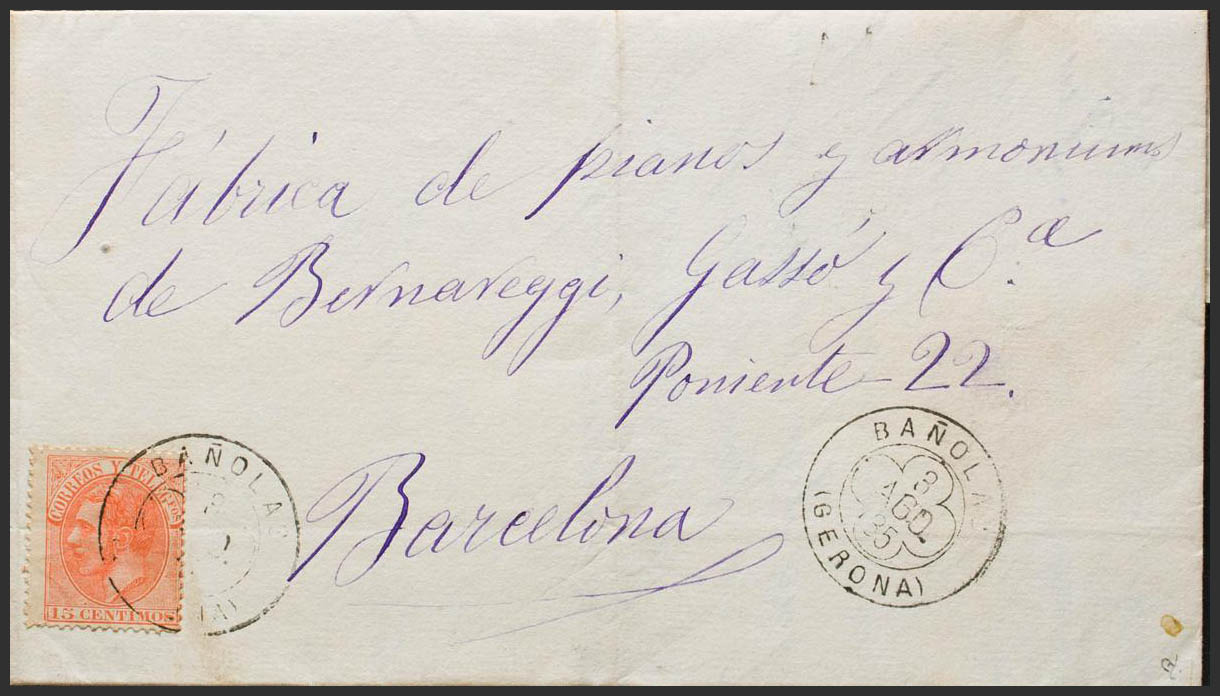 Fábrica de pianos y armoniums
de Bernareggi, Gassó y Cª
Poniente 22.
Barcelona
CORREOS Y TELEGFOS
15 CENTIMOS
BAÑOLAS
BAÑOLAS
3
AGO
85
(GERONA)